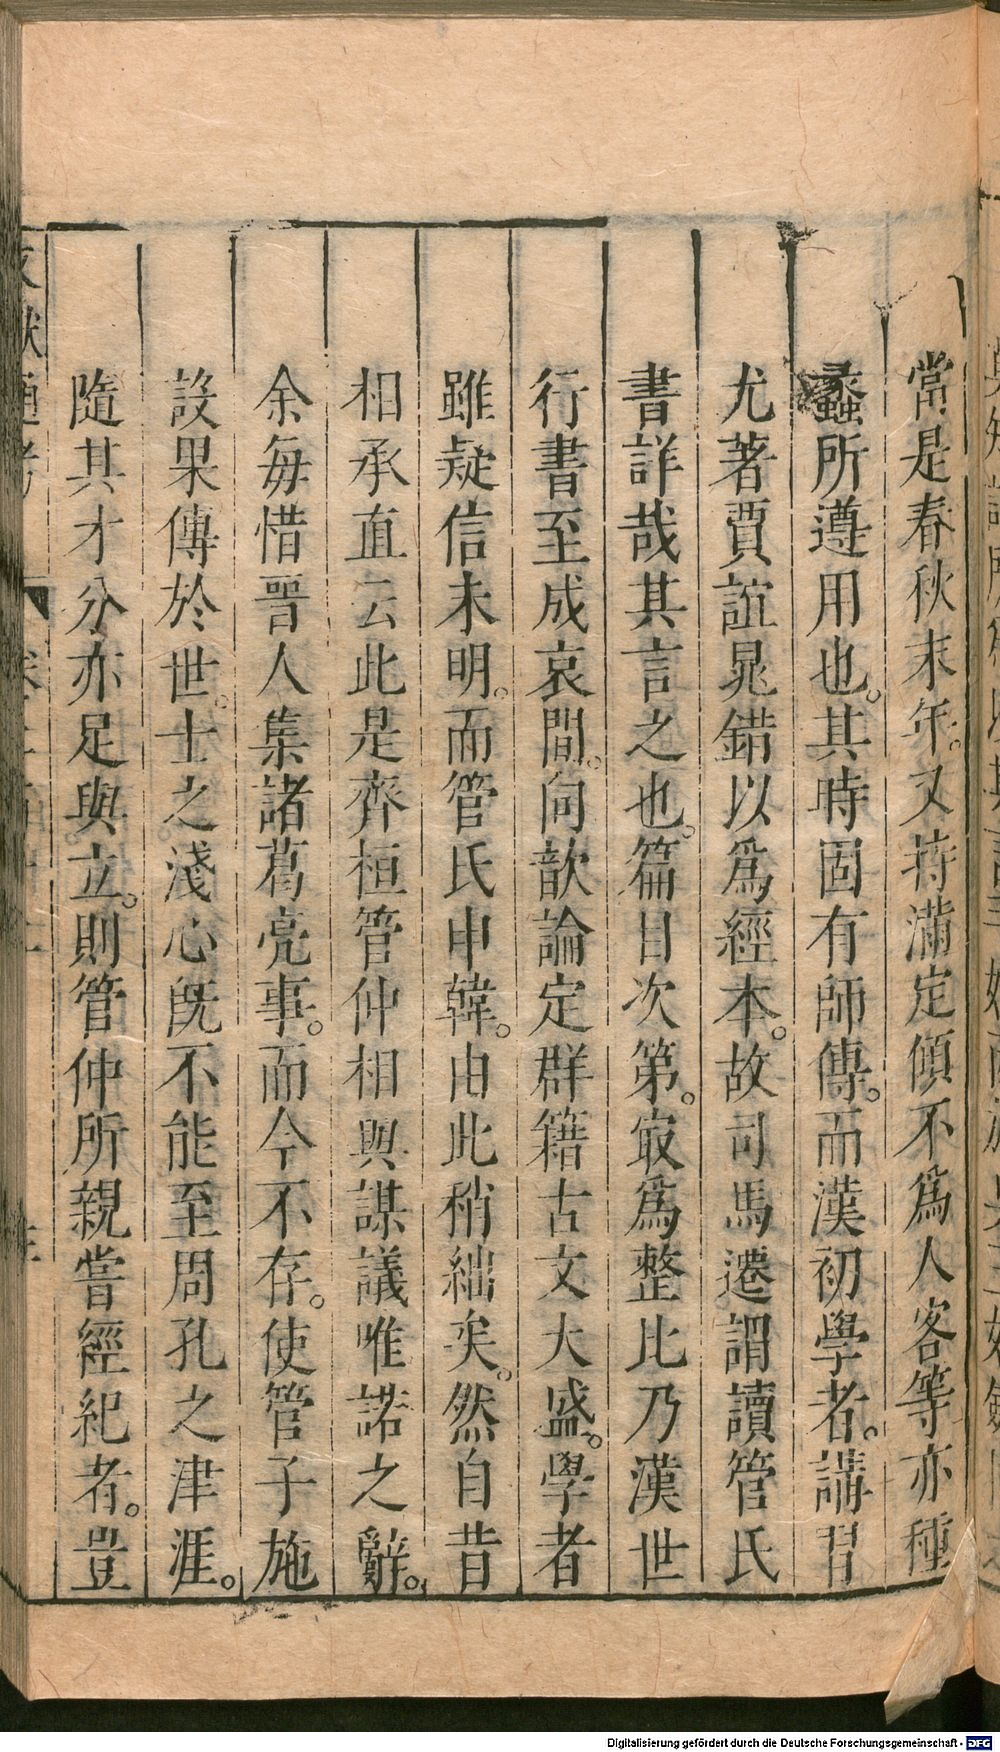 當是春秋末年。又持滿定傾不爲人客等亦種
蠡所遵用也。其時固有師傳。而漢初學者。講習
尤著賈誼晁錯以爲經本。故司馬遷謂讀管氏
書詳哉其言之也。篇目次第。㝡爲整比乃漢世
行書至成哀間。向歆論定群籍古文大盛。學者
雖疑信未明。而管氏申韓。由此稍絀矣。然自昔
相承直云此是齊桓管仲相與謀議唯諾之辭。
余每惜晉人集諸葛亮事。而今不存。使管子施
設果傳於世。士之淺心旣不能至周孔之津涯。
隨其才分亦足與立。則管仲所親嘗經紀者。豈
文獻通考
Digitalisierung gefördert durch die Deutsche Forschungsgemeinschaft - DFG